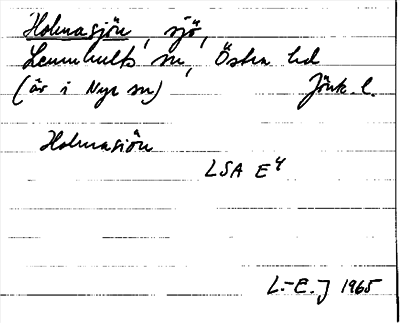 Holmasjön, sjö,
Lemnhults sn, Östra hd
(är i Nye sn) Jönk. l.
Holmasjön
LSA E4
L.-E. J 1965